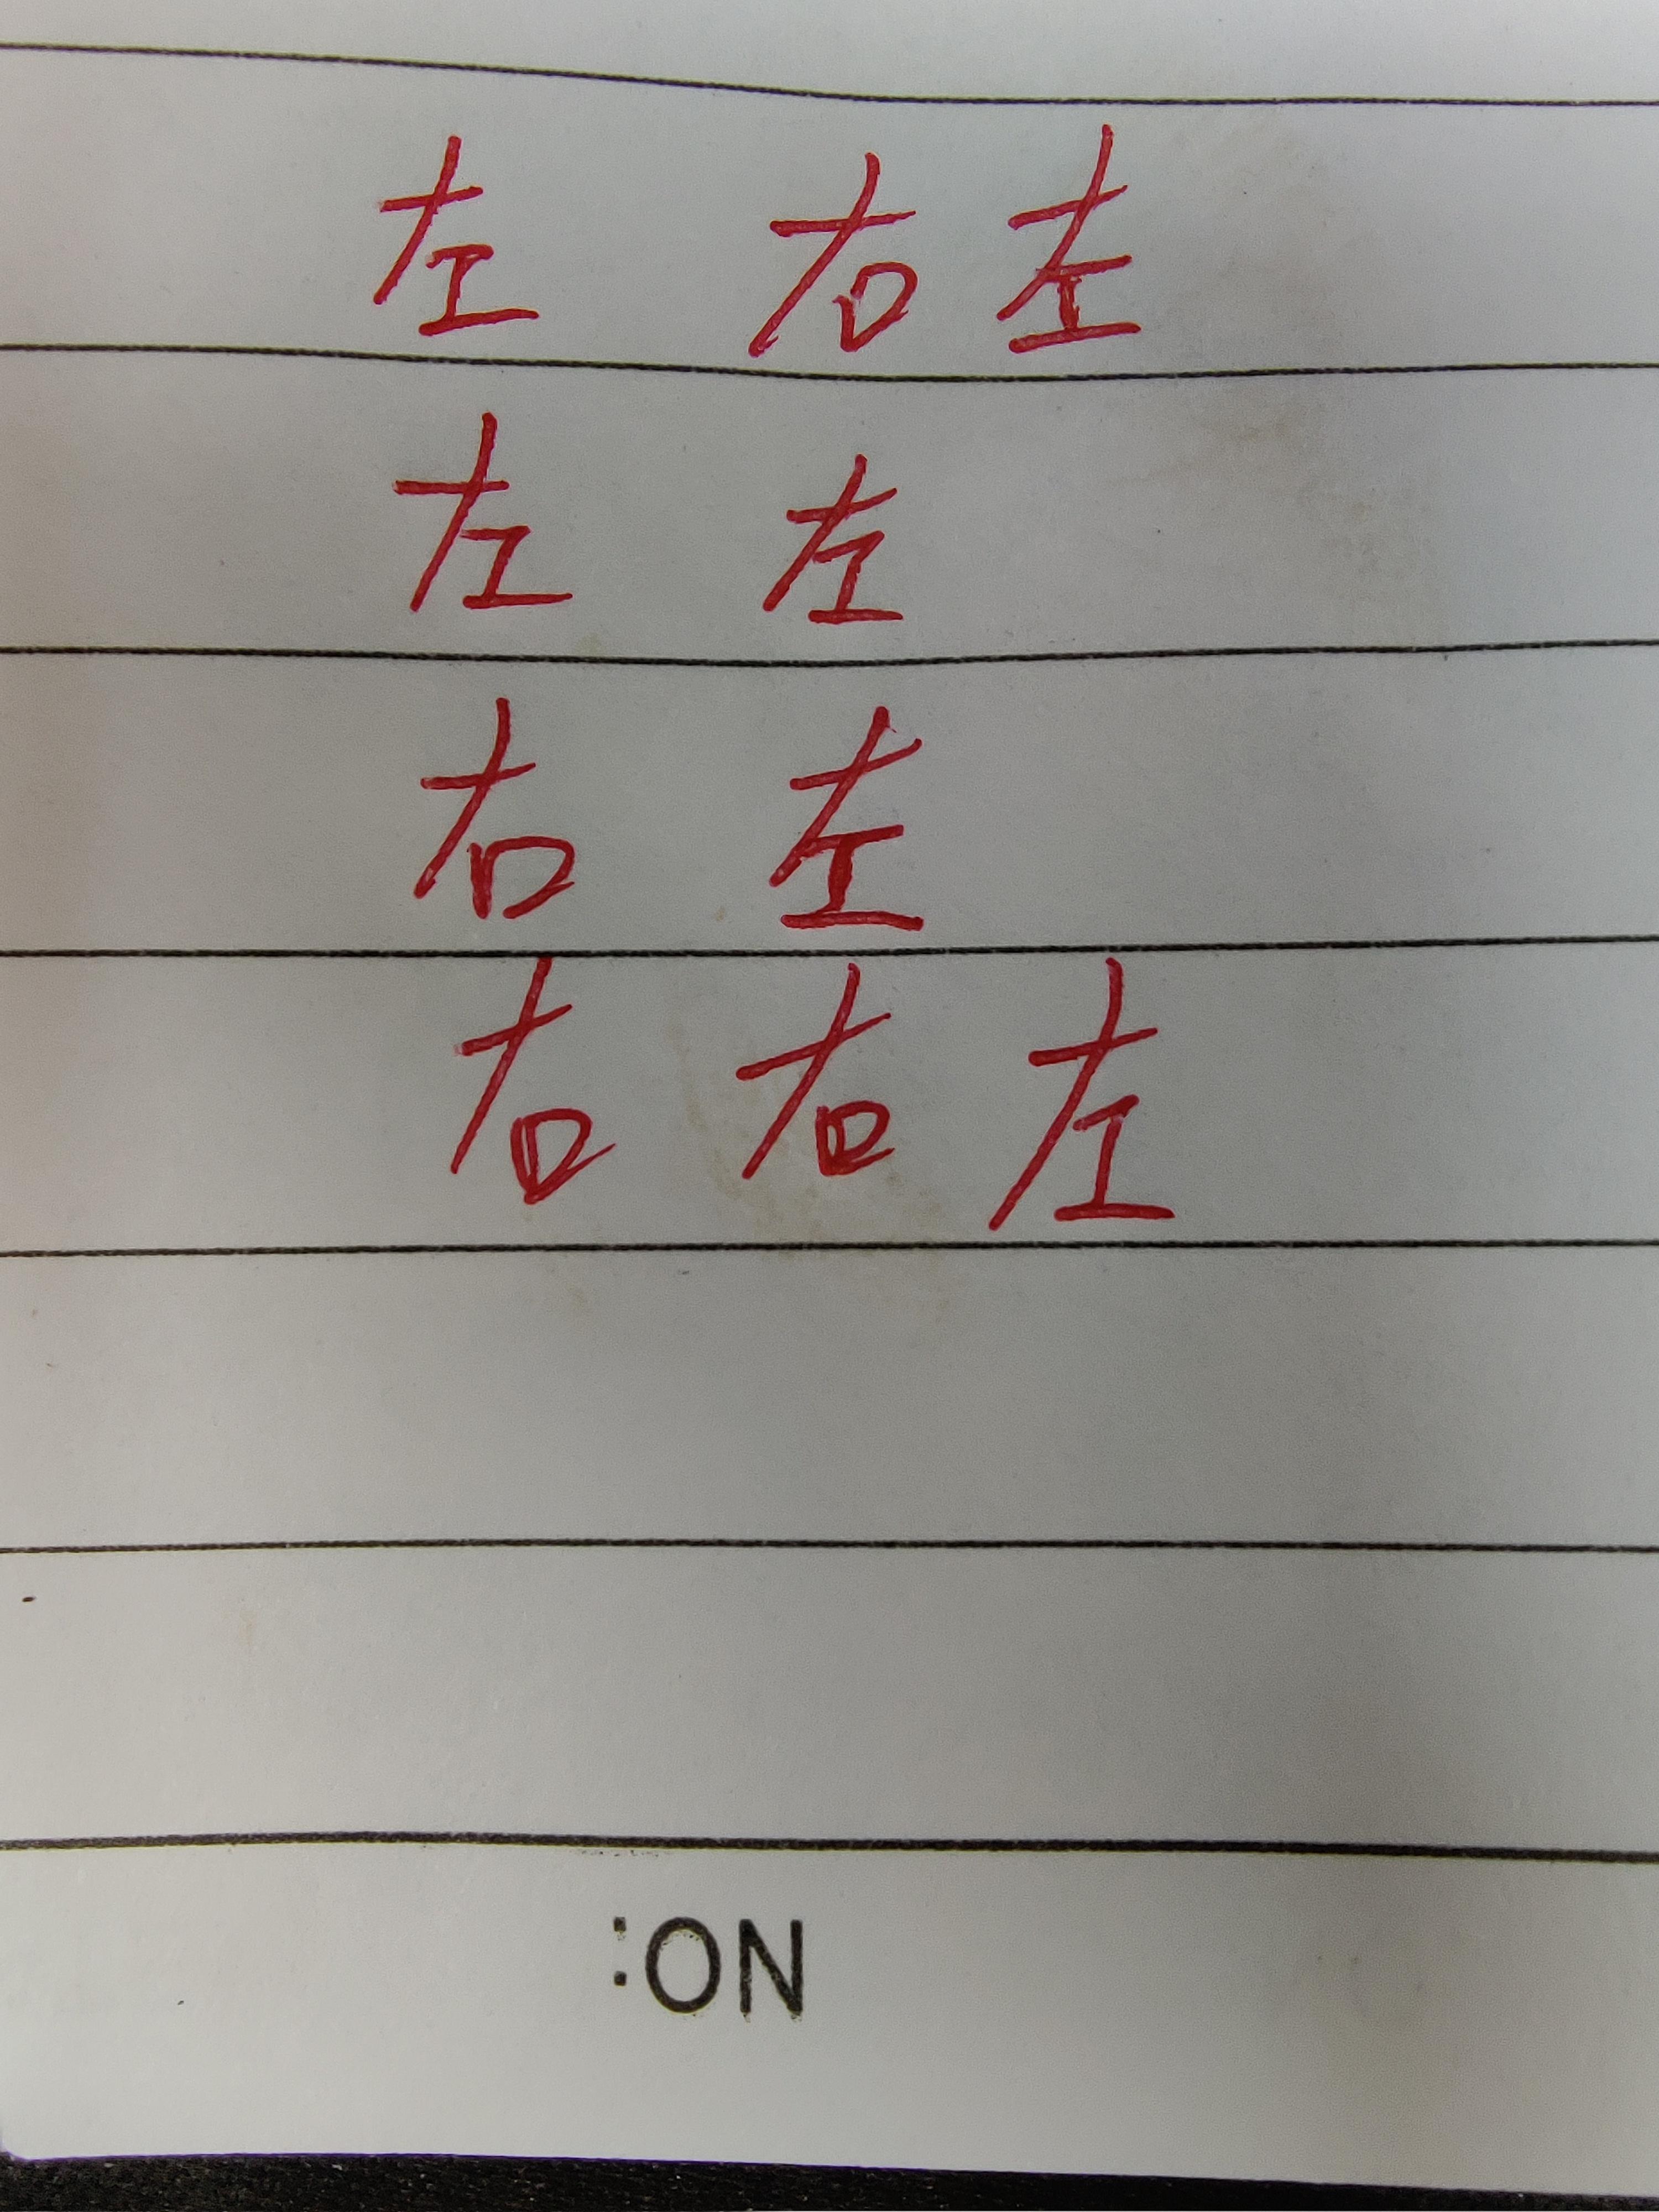 左 右左
左 左
右 左
右 右 左
:ON